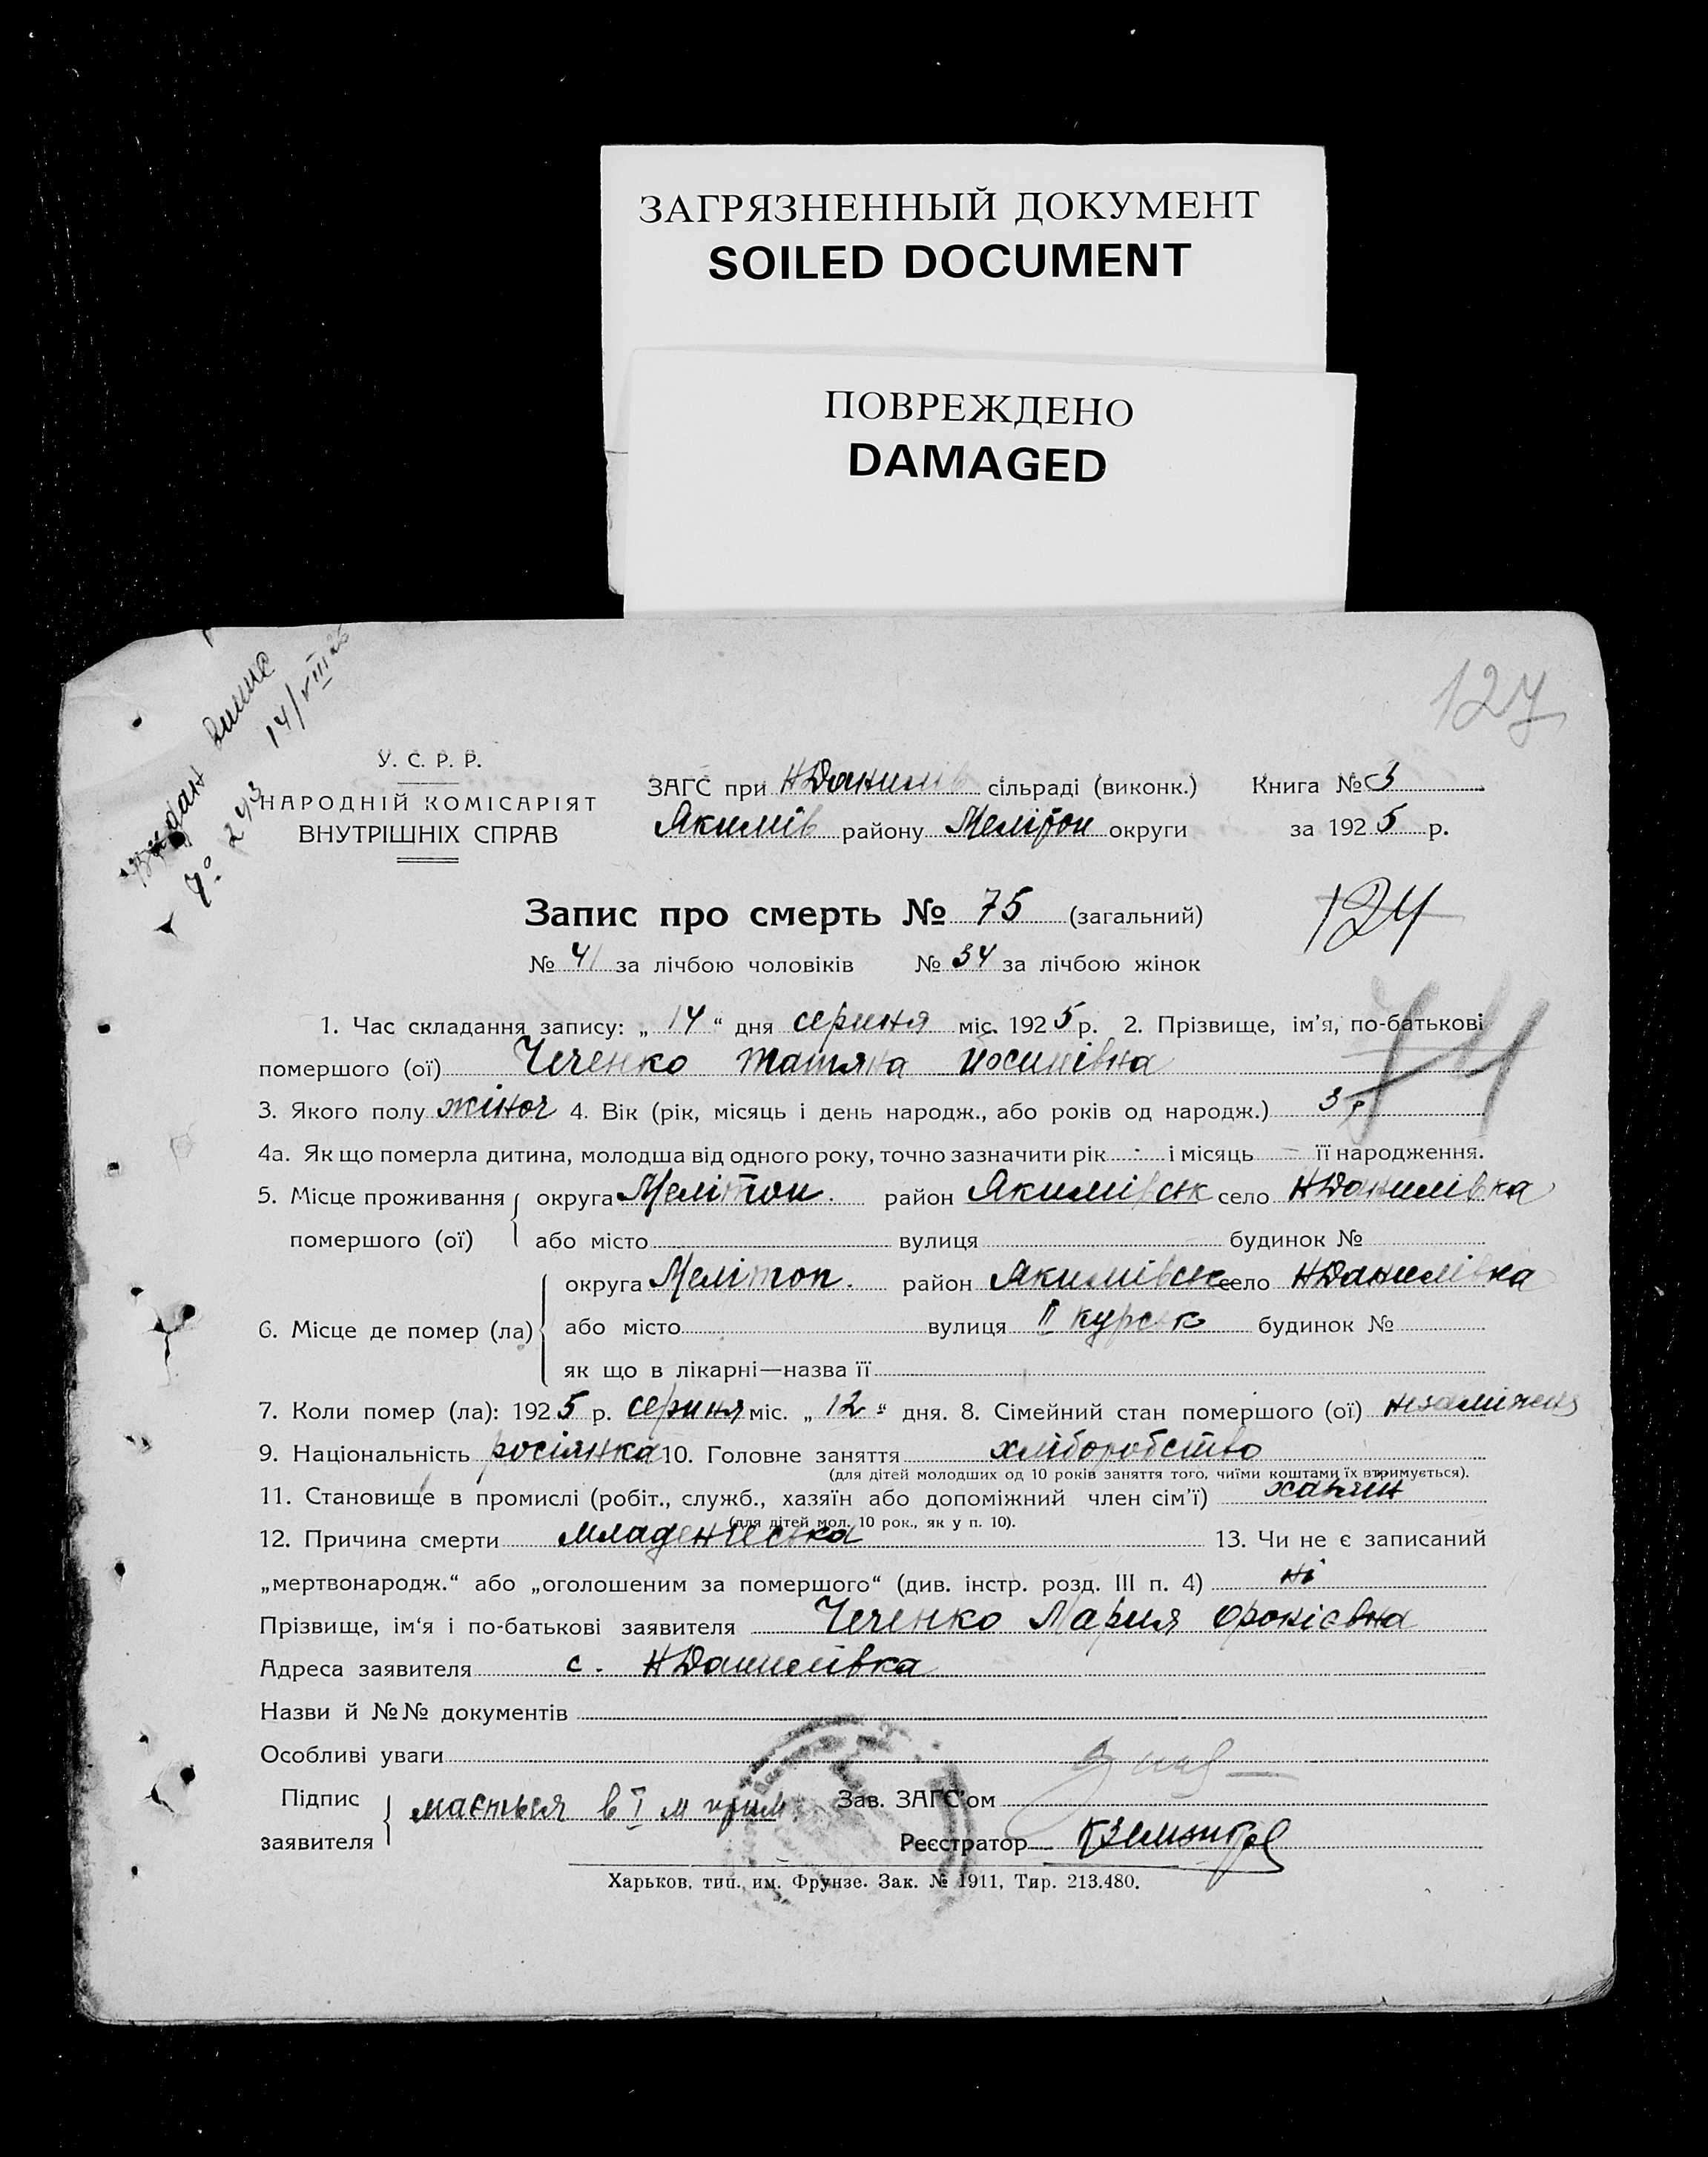 ЗАГРЯЗНЕННЫЙ ДОКУМЕНТ
SOILED DOCUMENT
ПОВРЕЖДЕНО
DAMAGED
127
14/VIII 25
№ 243
У. С. Р. Р.
НАРОДНІЙ КОМІСАРІЯТ
ВНУТРІШНІХ СПРАВ
ЗАГС при НДанилів сільраді (виконк.) Книга № 3
Якимів району Мелітоп округи за 1925 р.
Запис про смерть № 75 (загальний)
124
№ 41 за лічбою чоловіків № 34 за лічбою жінок
1. Час складання запису: „14“ дня серпня міс. 1925 р. 2. Прізвище, ім’я, по-батькові
помершого (ої) Чеченко Татяна Йосипівна
3. Якого полу жіноч 4. Вік (рік, місяць і день народж., або років од народж.) 3 р
4а. Як що померла дитина, молодша від одного року, точно зазначити рік - і місяць - її народження.
5. Місце проживання округа Мелітоп. район Якимівськ село НДанилівка
помершого (ої) або місто вулиця будинок №
округа Мелітоп. район Якимівськ село НДанилівка
6. Місце де помер (ла) або місто вулиця II курськ будинок №
як що в лікарні—назва її
7. Коли помер (ла): 1925 р. серпня міс. „12“ дня. 8. Сімейний стан помершого (ої) незаміжня
9. Національність росіянка 10. Головне заняття хліборобство
(для дітей молодших од 10 років заняття того, чиїми коштами їх втримується).
11. Становище в промислі (робіт., служб., хазяїн або допоміжний член сім’ї) хазяїн
(для дітей мол. 10 рок., як у п. 10).
12. Причина смерти младенческа 13. Чи не є записаний
„мертвонародж.“ або „оголошеним за помершого“ (див. інстр. розд. III п. 4) ні
Прізвище, ім‘я і по-батькові заявителя Чеченко Мария
Адреса заявителя с. НДанилівка
Назви й №№ документів
Особливі уваги
Підпис заявителя мається в I м прим. Зав. ЗАГС’ом
Реєстратор
Харьков, тип. им. Фрунзе. Зак. № 1911, Тир. 213.480.